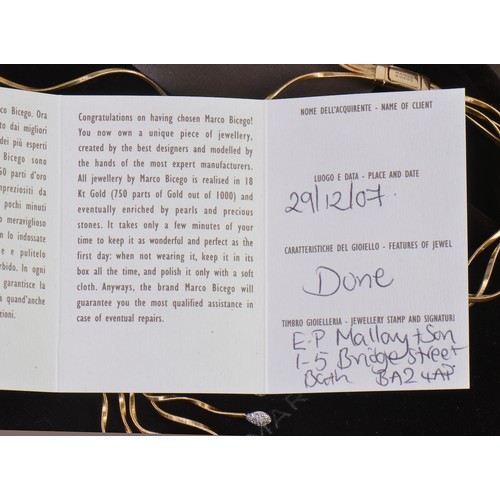 co Bicego. Ora
to dai migliori
dei più esperti
Bicego sono
50 parti d'oro
mpreziositi da
pochi minuti
o meraviglioso
n lo indossate
e e pulitelo
rbido. In ogni
garantisce la
a quand'anche
zioni.
Congratulations on having chosen Marco Bicego!
You now own a unique piece of jewellery,
created by the best designers and modelled by
the hands of the most expert manufacturers.
All jewellery by Marco Bicego is realised in 18
Kt Gold (750 parts of Gold out of 1000) and
eventually enriched by pearls and precious
stones. It takes only a few minutes of your
time to keep it as wonderful and perfect as the
first day: when not wearing it, keep it in its
box all the time, and polish it only with a soft
cloth. Anyways, the brand Marco Bicego will
guarantee you the most qualified assistance in
case of eventual repairs.
NOME DELL'ACQUIRENTE - NAME OF CLIENT
LUOGO E DATA - PLACE AND DATE
29/12/07.
CARATTERISTICHE DEL GIOIELLO - FEATURES OF JEWEL
Done
TIMBRO GIOIELLERIA - JEWELLERY STAMP AND SIGNATURE
E.P Mallory + Son
1-5 Bridge street
Bath BA2 4AP